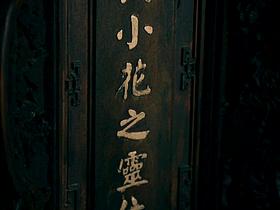 小花之靈